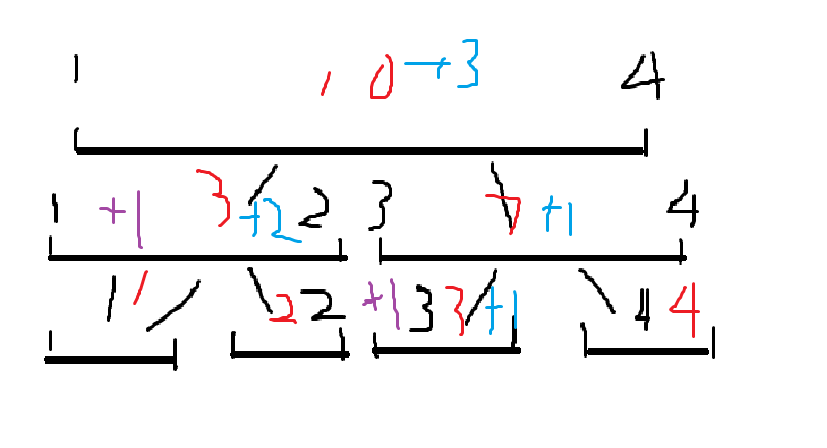 1 10 →3 4
1 +1 3 +2 2 3 7 +1 4
1 1 2 2 +1 3 3 +1 4 4